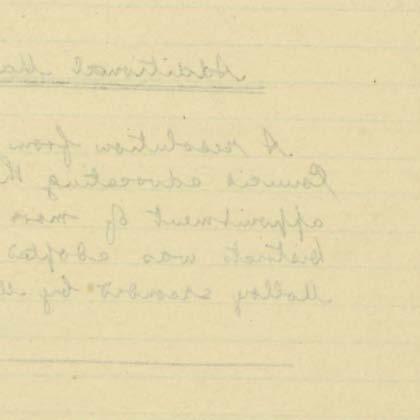 Additional Ma
A resolution from
Council advocating th
appointment of more
Districts was adopted
Molloy seconded by